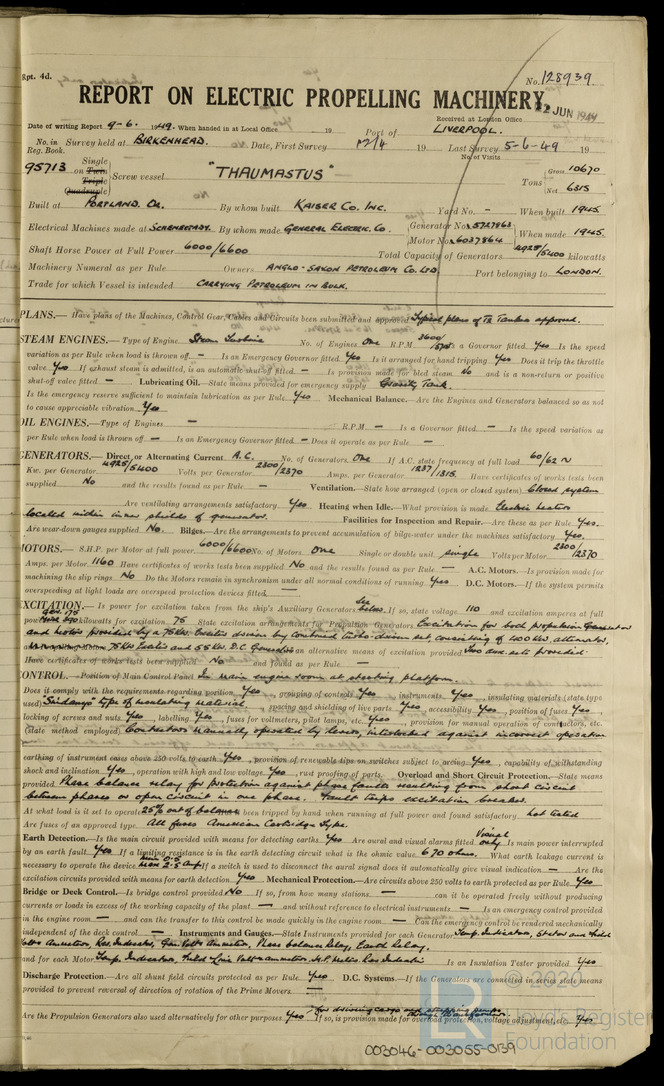 Rpt. 4d.
No. 128939
REPORT ON ELECTRIC PROPELLING MACHINERY.
2 JUN 1949
Date of writing Report 9-6. 1949. When handed in at Local Office 19 Port of LIVERPOOL. Received at London Office
No. in Reg. Book. Survey held at BIRKENHEAD. Date, First Survey 19 Last Survey 5-6-49 19
No. of Visits
95713 on Single Twin Triple Quadruple Screw vessel "THAUMASTUS" Tons Gross 10670 Net 6315
Built at PORTLAND, OR. By whom built KAISER CO. INC. Yard No. - When built 1945.
Electrical Machines made at SCHENECTADY. By whom made GENERAL ELECTRIC. CO. Generator No. 5727863 Motor No. 6037864 When made 1945.
Shaft Horse Power at Full Power 6000/6600 Total Capacity of Generators 4925/5400 kilowatts
Machinery Numeral as per Rule Owners ANGLO-SAXON PETROLEUM CO. LTD. Port belonging to LONDON.
Trade for which Vessel is intended CARRYING PETROLEUM IN BULK.
PLANS.— Have plans of the Machines, Control Gear, Cables and Circuits been submitted and approved Typical plans of T2 Tankers approved.
STEAM ENGINES.— Type of Engine Steam Turbine No. of Engines One R.P.M. 3600/ a Governor fitted. Yes Is the speed
variation as per Rule when load is thrown off. — Is an Emergency Governor fitted Yes Is it arranged for hand tripping Yes Does it trip the throttle
valve. Yes If exhaust steam is admitted, is an automatic shut-off fitted — Is provision made for bled steam No and is a non-return or positive
shut-off valve fitted — Lubricating Oil.—State means provided for emergency supply Gravity Tank.
Is the emergency reserve sufficient to maintain lubrication as per Rule. Yes Mechanical Balance.—Are the Engines and Generators balanced so as not
to cause appreciable vibration. Yes
OIL ENGINES.—Type of Engines — R.P.M — Is a Governor fitted — Is the speed variation as
per Rule when load is thrown off — Is an Emergency Governor fitted — Does it operate as per Rule —
GENERATORS.— Direct or Alternating Current A.C. No. of Generators One If A.C. state frequency at full load 60/62 N
Kw. per Generator 4925/5400 Volts per Generator 2300/2370 Amps. per Generator 1237/1315. Have certificates of works tests been
supplied No and the results found as per Rule — Ventilation.—State how arranged (open or closed system) Closed system
Are ventilating arrangements satisfactory Yes Heating when Idle.—What provision is made Electric heaters
located within inner shields of generator. Facilities for Inspection and Repair.—Are these as per Rule Yes.
Are wear-down gauges supplied No. Bilges.—Are the arrangements to prevent accumulation of bilge-water under the machines satisfactory Yes.
MOTORS.— S.H.P. per Motor at full power 6000/6600 No. of Motors One Single or double unit single Volts per Motor 2300/2370
Amps. per Motor 1160 Have certificates of works tests been supplied No and the results found as per Rule — A.C. Motors.—Is provision made for
machining the slip rings No Do the Motors remain in synchronism under all normal conditions of running Yes D.C. Motors.—If the system permits
overspeeding at light loads are overspeed protection devices fitted —
EXCITATION.—Is power for excitation taken from the ship's Auxiliary Generators See below. If so, state voltage 110 and excitation amperes at full
power 175 kilowatts for excitation 75 State excitation arrangements for Propulsion Generators Excitation for both propulsion Generator
and Motor provided by a 75 KW. Exciter driven by Combined turbo driven set, consisting of 400 KW. alternator,
75 KW Exciter and 55 KW. D.C. Generator an alternative means of excitation provided Two aux. sets provided.
Have certificates of works tests been supplied No and found as per Rule —
CONTROL.—Position of Main Control Panel In main engine room at steering platform.
Does it comply with the requirements regarding position Yes, grouping of controls Yes, instruments Yes, insulating materials (state type
used) "Sindanyo" type of insulating material, spacing and shielding of live parts Yes, accessibility Yes, position of fuses Yes,
locking of screws and nuts Yes, labelling Yes, fuses for voltmeters, pilot lamps, etc. Yes, provision for manual operation of contactors, etc.
(state method employed) Contactors manually operated by levers, interlocked against incorrect operation
earthing of instrument cases above 250 volts to earth Yes, provision of renewable tips on switches subject to arcing Yes, capability of withstanding
shock and inclination Yes, operation with high and low voltage Yes, rust proofing of parts Overload and Short Circuit Protection.—State means
provided Phase balance relay for protection against phase faults resulting from short circuit
between phases or open circuit in one phase. Fault trips excitation breaker.
At what load is it set to operate 25% out of balance been tripped by hand when running at full power and found satisfactory Not tested
Are fuses of an approved type. All fuses American Cartridge type.
Earth Detection.—Is the main circuit provided with means for detecting earths Yes Are aural and visual alarms fitted Visual only Is main power interrupted
by an earth fault. Yes If a limiting resistance is in the earth detecting circuit what is the ohmic value. 670 ohms. What earth leakage current is
necessary to operate the device Min 0.5 Max 2.5 Amp If a switch is used to disconnect the aural signal does it automatically give visual indication — Are the
excitation circuits provided with means for earth detection Yes Mechanical Protection.—Are circuits above 250 volts to earth protected as per Rule Yes.
Bridge or Deck Control.—Is bridge control provided No If so, from how many stations — can it be operated freely without producing
currents or loads in excess of the working capacity of the plant — and without reference to electrical instruments — Is an emergency control provided
in the engine room — and can the transfer to this control be made quickly in the engine room — Can the emergency control be rendered mechanically
independent of the deck control — Instruments and Gauges.—State Instruments provided for each Generator Temp. Indicators, Stator and Field
Volts Ammeters, Rev. Indicator, Gen. Volts Ammeter, Phase balance Relay, Earth Relay.
and for each Motor Temp. Indicators, Field Line Volts-ammeters Rev. Indicator Is an Insulation Tester provided Yes
Discharge Protection.—Are all shunt field circuits protected as per Rule. Yes D.C. Systems.—If the Generators are connected in series state means
provided to prevent reversal of direction of rotation of the Prime Movers —
Are the Propulsion Generators also used alternatively for other purposes. Yes for driving cargo If so, is provision made for overload protection, voltage adjustment, etc. Yes
© 2020
Lloyd's Register
Foundation
003046-003055-0139